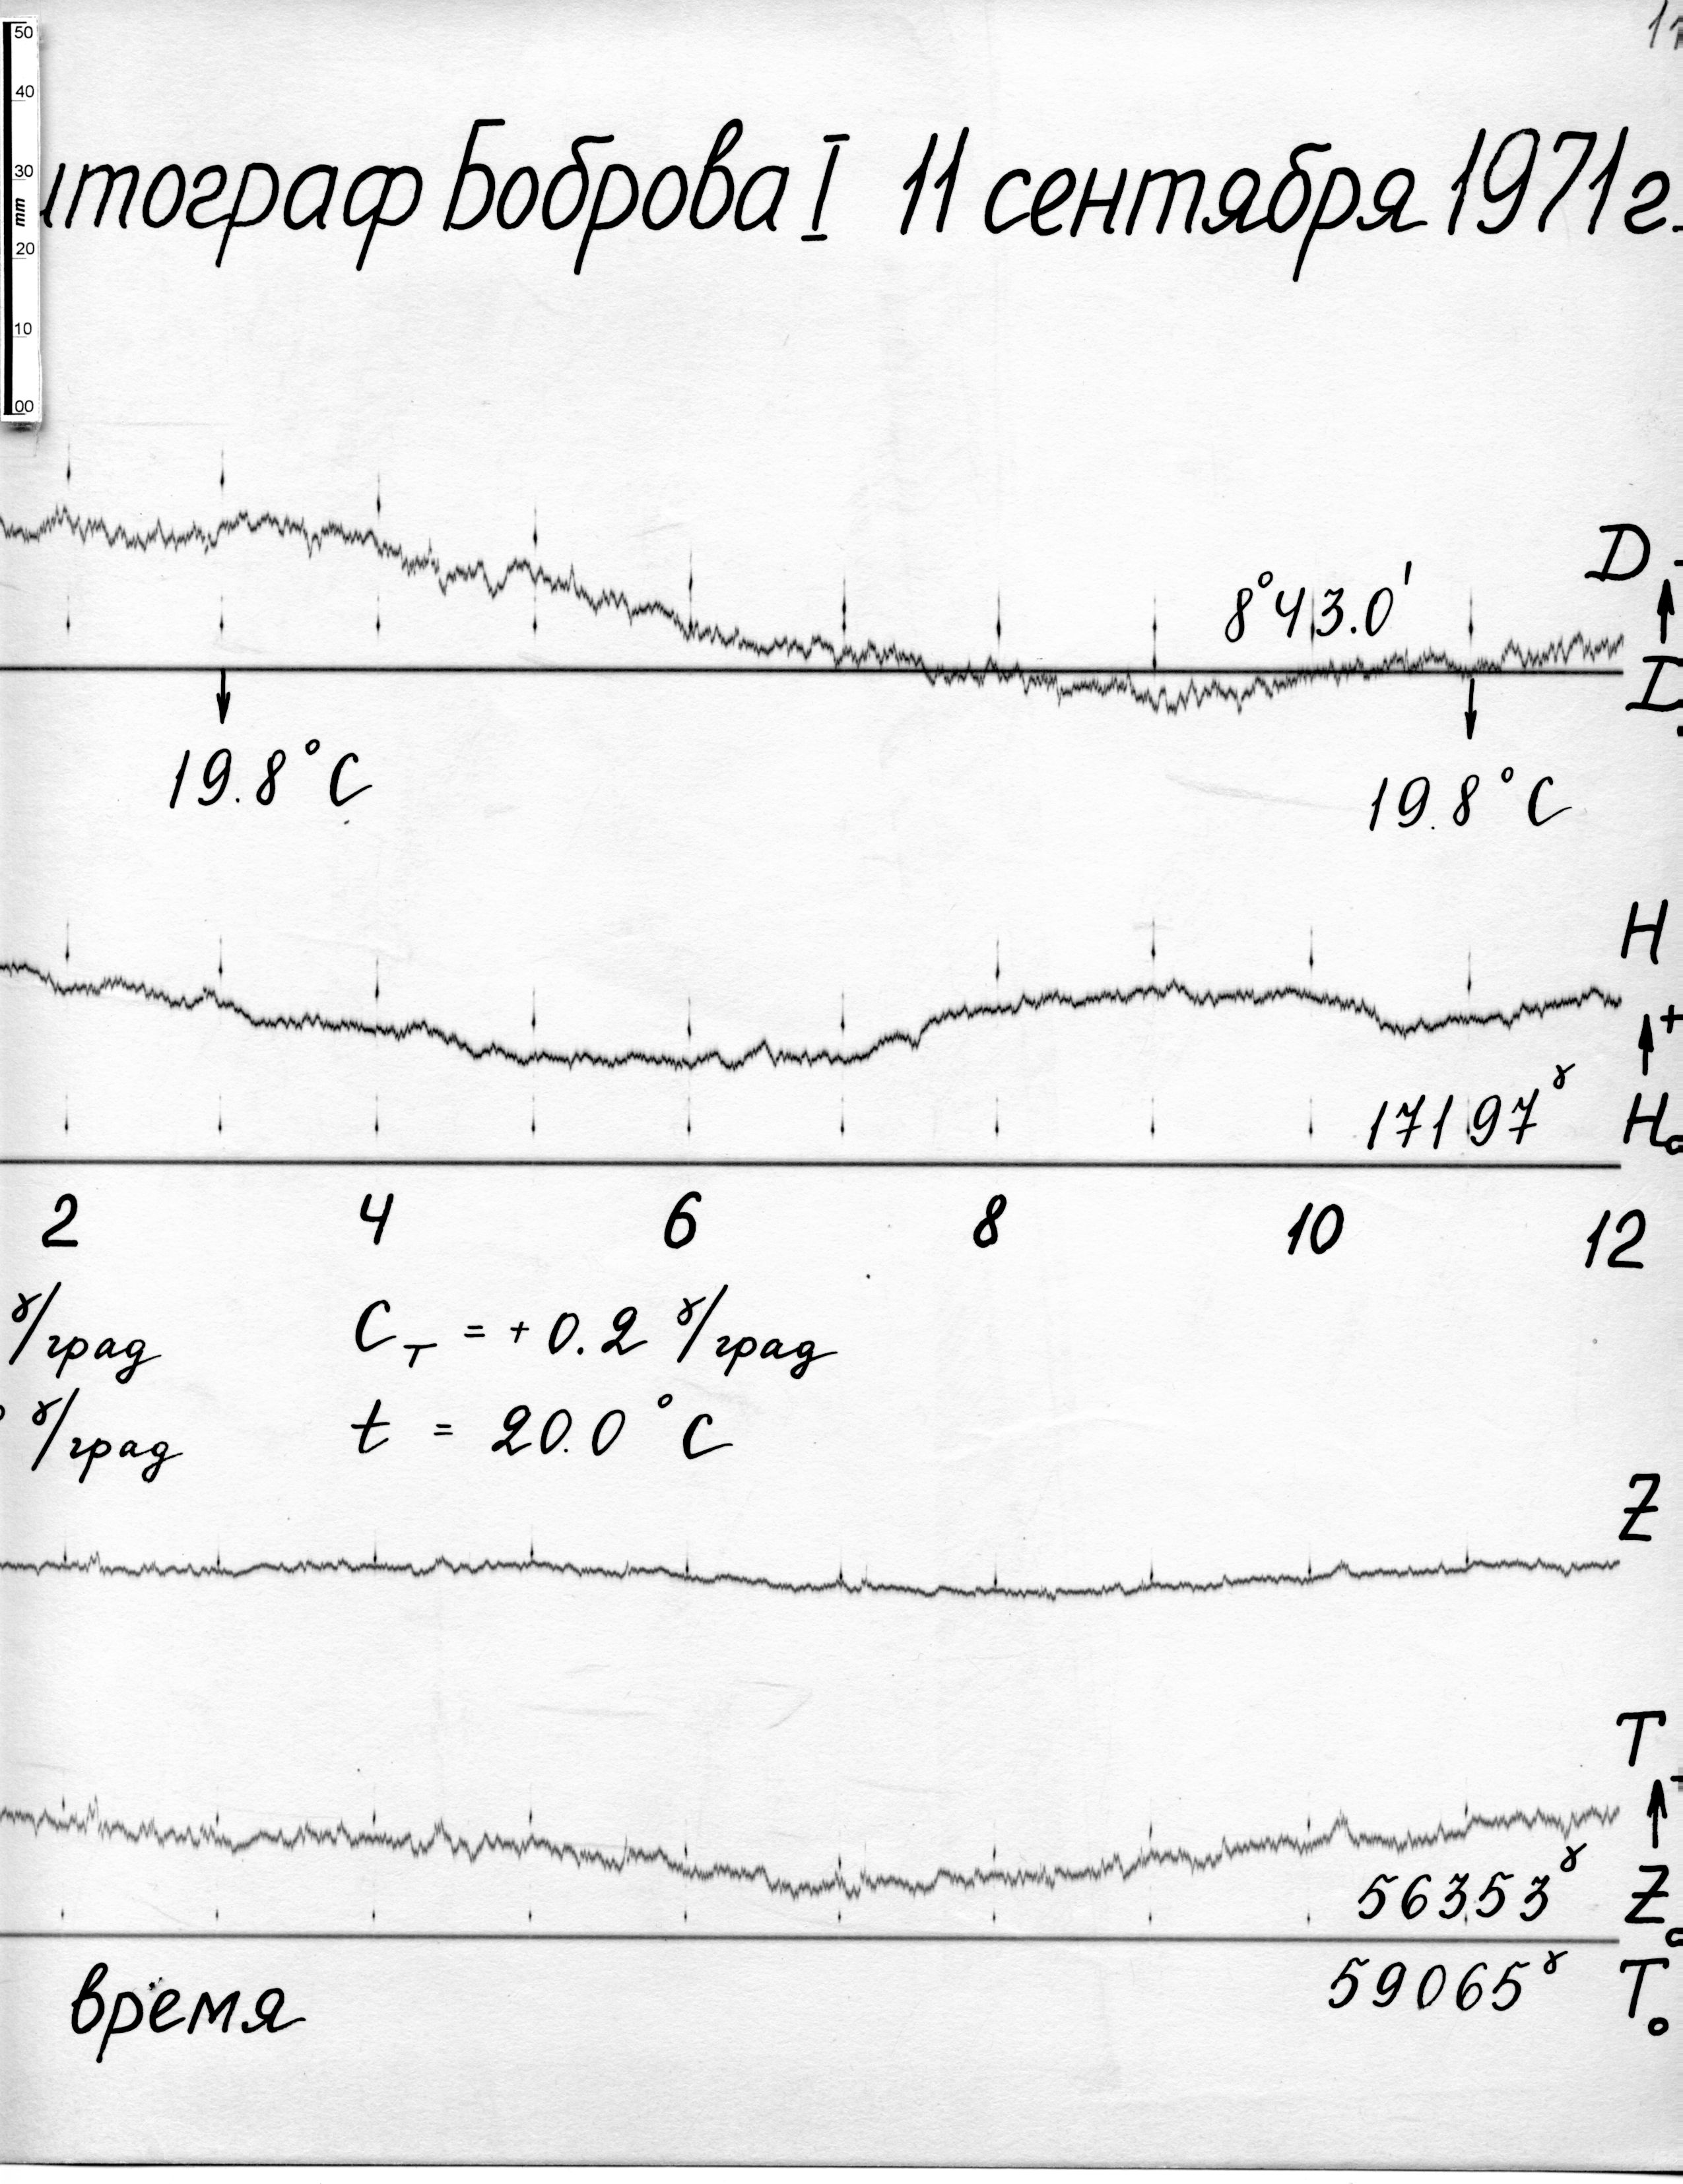 50
40
30
mm
20
10
00
итограф Боброва I 11 сентября 1971 г.
D
8°43.0'
19.8°C
19.8°C
H
+
17197ˠ H₀
2 4 6 8 10 12
ˠ/град C_T = +0.2 ˠ/град
ˠ/град t = 20.0°C
Z
T
56353ˠ Z₀
59065ˠ T₀
время